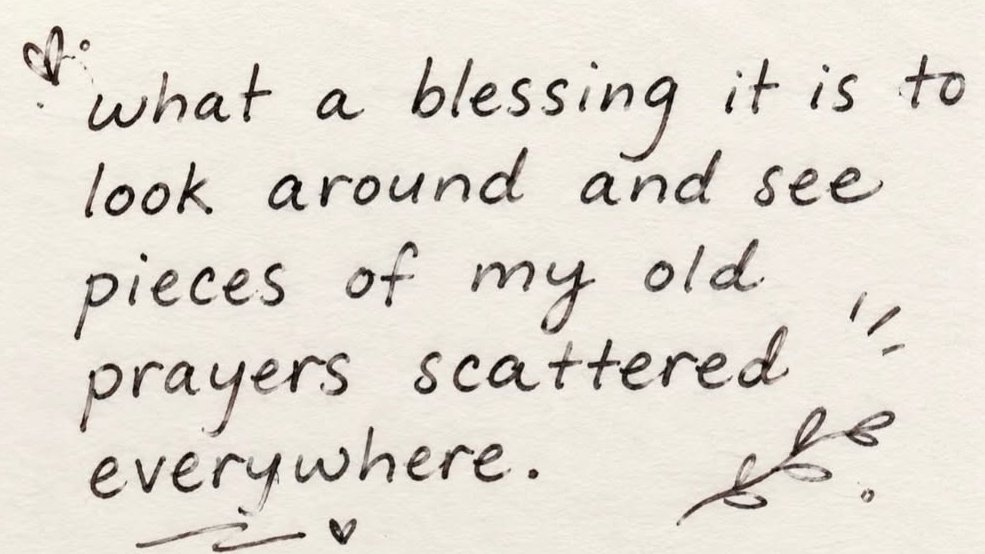 what a blessing it is to
look around and see
pieces of my old
prayers scattered
everywhere.